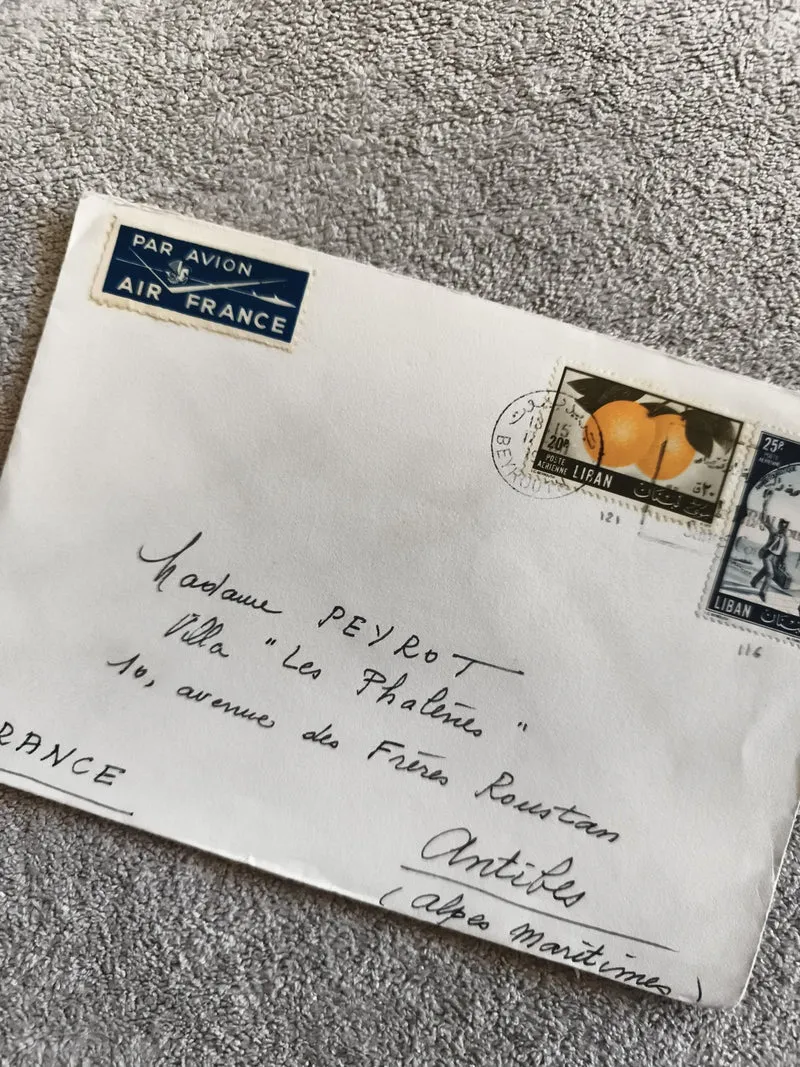 PAR AVION
AIR FRANCE
BEYROUTH
15
20P
POSTE
AERIENNE
LIBAN
لبنان
121
25P
POSTE
AERIENNE
LIBAN
لبنان
116
Madame PEYROT
Villa "Les Phalènes"
10, avenue des Frères Roustan
Antibes
(Alpes Maritimes)
RANCE